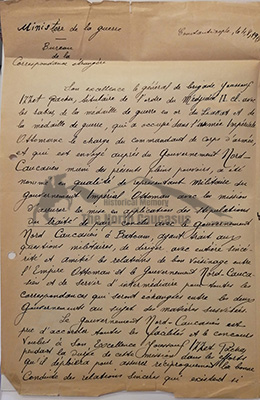 Ministère de la guerre
Bureau
de la
Correspondance étrangère
Constantinople, le
Son excellence le général de brigade Youssouf
Izzet Pacha, titulaire de l'ordre du Medjidié II cl. avec
les sabres de la médaille de guerre en or de Liakat et de
la médaille de guerre, qui a occupé dans l'armée Impériale
Ottomane la charge du commandant de Corps d'armée,
et qui est envoyé auprès du Gouvernement Nord-
Caucasien muni des présents pleins pouvoirs, a été
nommé en qualité de représentant militaire du
Gouvernement Impérial Ottoman avec la mission
d'assurer la mise en application des stipulations
du traité de paix conclu avec le Gouvernement
Nord Caucasien à Batoum ayant trait aux
questions militaires de diriger avec entière sincé-
rité et amitié les relations de bon voisinage entre
l'Empire Ottoman et le Gouvernement Nord-Cauca-
sien et de servir d'intermédiaire pour toutes les
correspondances qui seront échangées entre les deux
Gouvernements au sujet des matières susvisées.
Le Gouvernement Nord-Caucasien est
prié d'accorder toutes les facilités et le concours
voulus à Son Excellence Youssouf Izzet Pacha
pendant la durée de cette mission dans les efforts
qu'il déploiera pour assurer réciproquement la bonne
conduite des relations sincères qui existent si